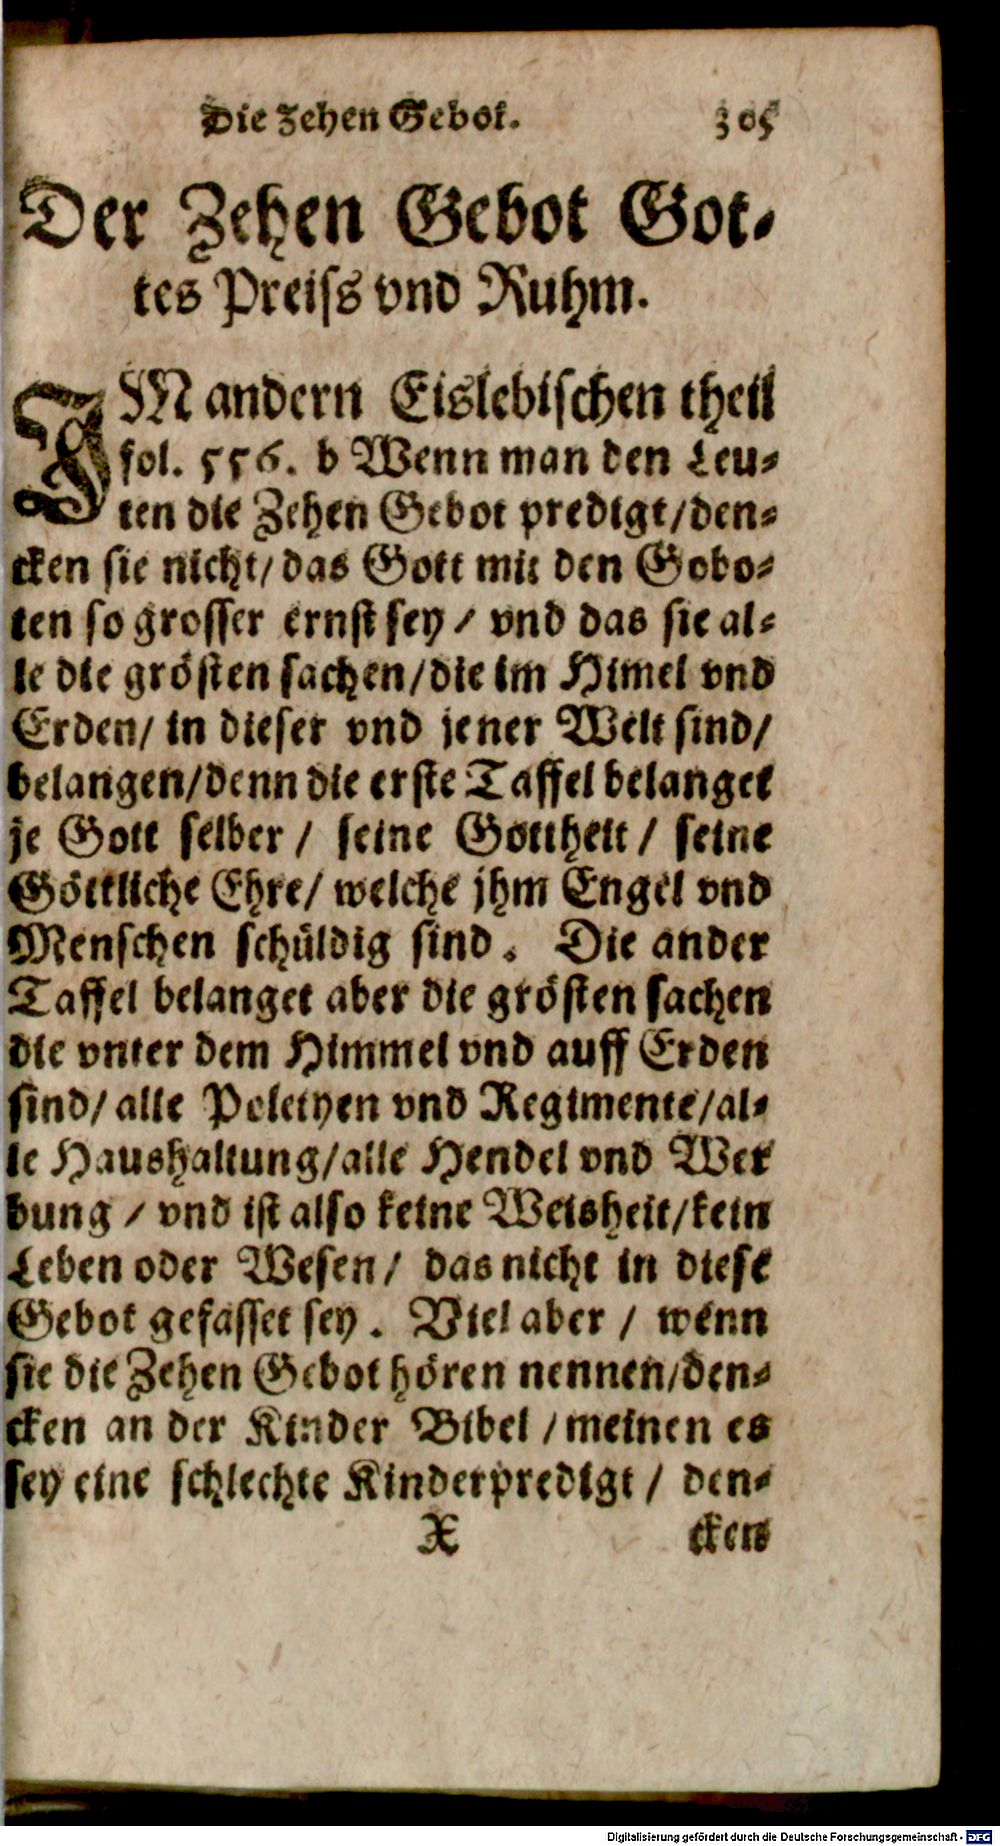 Die zehen Gebot. 305
Der Zehen Gebot Got-
tes Preiss vnd Ruhm.
IM andern Eislebischen theil
fol. 556. b Wenn man den Leu-
ten die Zehen Gebot predigt/den-
cken sie nicht/das Gott mit den Gobo-
ten so grosser ernst sey/ vnd das sie al-
le die grösten sachen/die im Himel vnd
Erden/ in dieser vnd jener Welt sind/
belangen/denn die erste Taffel belanget
je Gott selber/ seine Gottheit/ seine
Göttliche Ehre/ welche jhm Engel vnd
Menschen schüldig sind. Die ander
Taffel belanget aber die grösten sachen
die vnter dem Himmel vnd auff Erden
sind/ alle Poleiyen vnd Regimente/al-
le Haushaltung/alle Hendel vnd Wer
bung/ vnd ist also keine Weisheit/kein
Leben oder Wesen/ das nicht in diese
Gebot gefasset sey. Viel aber/ wenn
sie die Zehen Gebot hören nennen/den-
cken an der Kinder Bibel/meinen es
sey eine schlechte Kinderpredigt/ den-
X cken
Digitalisierung gefördert durch die Deutsche Forschungsgemeinschaft - DFG